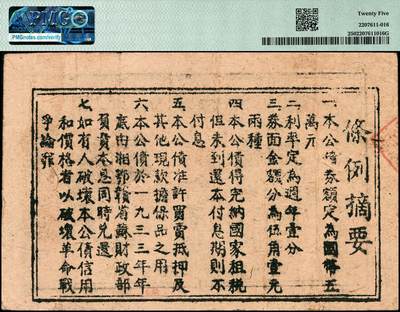 PMG
PMGnotes.com/verify
Twenty Five
2207611-016
2502207611016G
條例摘要
一 本公債券額定為國幣五
萬元
二 利率定為週年壹分
三 券面金額分為伍角壹元
兩種
四 本公債得完納國家租稅
但未到還本付息期則不
付息
五 本公債准許買賣抵押及
其他現款擔保品之用
六 本公債於一九三三年年
底由湘鄂贛省蘇財政部
負責本息同時兌還
七 如有人破壞本公債信用
和價格者以破壞革命戰
爭論罪